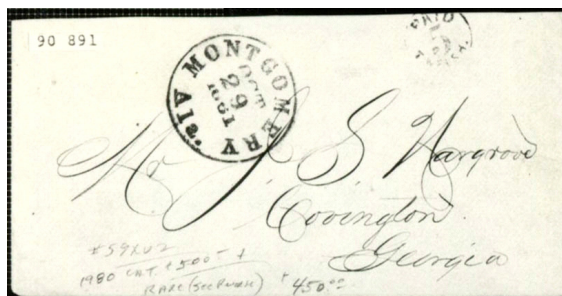 90 891
PAID
MONTGOMERY Ala.
OCT
29
1861
Mr J S Hargrove
Covington
Georgia
#59XU2
1980 CAT. $500 +
RARE (See )
$450.00